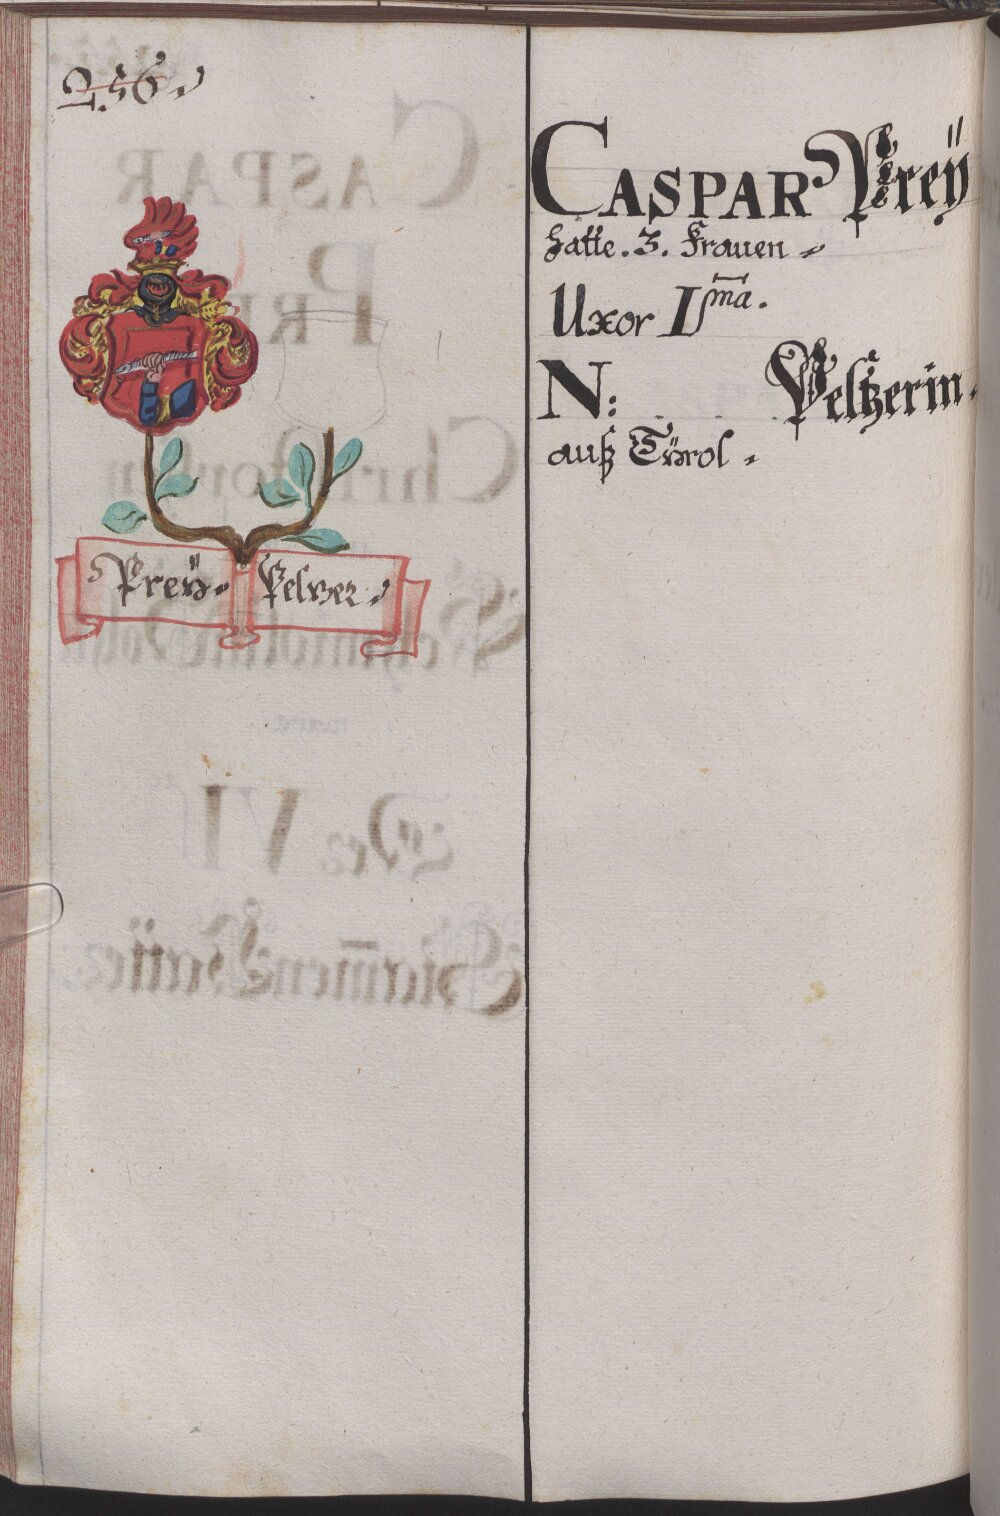 256.
CASPAR Preÿ
hatte. 3. Frauen.
Uxor I ma.
N: Peltzerin.
auß Tÿrol.
Preÿ. Pelzer.